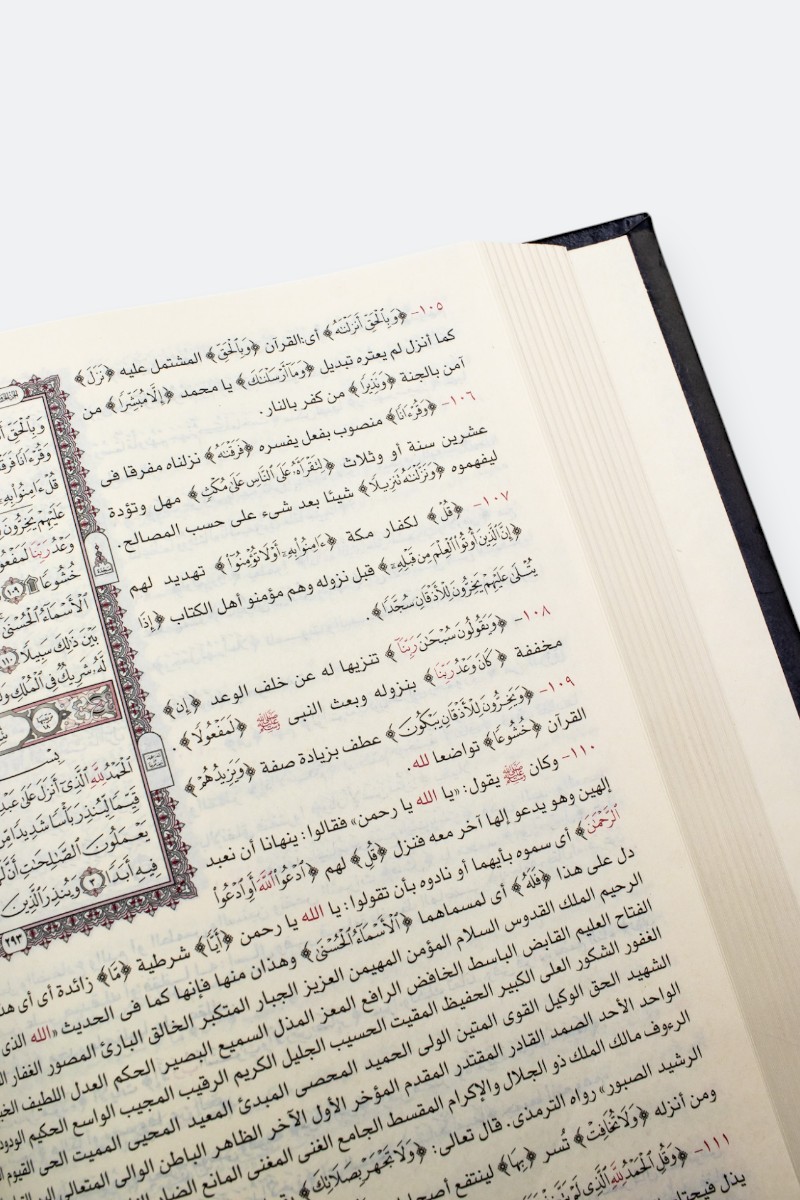 ١٠٥- ﴿وَبِالْحَقِّ أَنزَلْنَٰهُ﴾ أى: القرآن ﴿وَبِالْحَقِّ﴾ المشتمل عليه ﴿نَزَلَ﴾
كما أنزل لم يعتره تبديل ﴿وَمَآ أَرْسَلْنَٰكَ﴾ يا محمد ﴿إِلَّا مُبَشِّرًا﴾ من
آمن بالجنة ﴿وَنَذِيرًا﴾ من كفر بالنار.
١٠٦- ﴿وَقُرْءَانًا﴾ منصوب بفعل يفسره ﴿فَرَقْنَٰهُ﴾ نزلناه مفرقا فى
عشرين سنة أو وثلاث ﴿لِتَقْرَأَهُۥ عَلَى النَّاسِ عَلَىٰ مُكْثٍ﴾ مهل وتؤدة
ليفهموه ﴿وَنَزَّلْنَٰهُ تَنزِيلًا﴾ شيئا بعد شىء على حسب المصالح.
١٠٧- ﴿قُلْ﴾ لكفار مكة ﴿ءَامِنُوا۟ بِهِۦٓ أَوْ لَا تُؤْمِنُوٓا۟﴾ تهديد لهم
﴿إِنَّ الَّذِينَ أُوتُوا۟ الْعِلْمَ مِن قَبْلِهِۦٓ﴾ قبل نزوله وهم مؤمنو أهل الكتاب ﴿إِذَا
يُتْلَىٰ عَلَيْهِمْ يَخِرُّونَ لِلْأَذْقَانِ سُجَّدًا﴾.
١٠٨- ﴿وَيَقُولُونَ سُبْحَٰنَ رَبِّنَآ﴾ تنزيها له عن خلف الوعد ﴿إِن﴾
مخففة ﴿كَانَ وَعْدُ رَبِّنَا﴾ بنزوله وبعث النبى ﷺ ﴿لَمَفْعُولًا﴾.
١٠٩- ﴿وَيَخِرُّونَ لِلْأَذْقَانِ يَبْكُونَ﴾ عطف بزيادة صفة ﴿وَيَزِيدُهُمْ﴾
القرآن ﴿خُشُوعًا﴾ تواضعا لله.
١١٠- وكان ﷺ يقول: «يا الله يا رحمن» فقالوا: ينهانا أن نعبد
إلهين وهو يدعو إلها آخر معه فنزل ﴿قُلِ﴾ لهم ﴿ٱدْعُوا۟ ٱللَّهَ أَوِ ٱدْعُوا۟
ٱلرَّحْمَٰنَ﴾ أى سموه بأيهما أو نادوه بأن تقولوا: يا الله يا رحمن ﴿أَيًّا﴾ شرطية ﴿مَّا﴾ زائدة أى أى
دل على هذا ﴿فَلَهُ﴾ أى لمسماهما ﴿ٱلْأَسْمَآءُ ٱلْحُسْنَىٰ﴾ وهذان منها فإنها كما فى الحديث «الله الذى
الرحيم الملك القدوس السلام المؤمن المهيمن العزيز الجبار المتكبر الخالق البارئ المصور الغفار
الفتاح العليم القابض الباسط الخافض الرافع المعز المذل السميع البصير الحكم العدل اللطيف
الغفور الشكور العلى الكبير الحفيظ المقيت الحسيب الجليل الكريم الرقيب المجيب الواسع الحكيم الودود
الشهيد الحق الوكيل القوى المتين الولى الحميد المحصى المبدئ المعيد المحيى المميت الحى القيوم
الواحد الأحد الصمد القادر المقتدر المقدم المؤخر الأول الآخر الظاهر الباطن الوالى المتعالى
الرءوف مالك الملك ذو الجلال والإكرام المقسط الجامع الغنى المغنى المانع الضار
الرشيد الصبور» رواه الترمذى. قال تعالى: ﴿وَلَا تَجْهَرْ بِصَلَاتِكَ﴾
ومن أنزله ﴿وَلَا تُخَافِتْ﴾ تُسر ﴿بِهَا﴾ لينتفع
١١١- ﴿وَقُلِ الْحَمْدُ لِلَّهِ الَّذِى لَمْ
يذل
قُلْ ءَامِنُوا۟ بِهِۦٓ
عَلَيْهِمْ يَخِرُّونَ
وَعْدُ رَبِّنَا لَمَفْعُو
خُشُوعًا ۩ ١٠٩
ٱلْأَسْمَآءُ ٱلْحُسْنَىٰ
بَيْنَ ذَٰلِكَ سَبِيلًا ١١٠
لَّهُۥ شَرِيكٌ فِى ٱلْمُلْكِ وَلَ
ٱلْحَمْدُ لِلَّهِ ٱلَّذِىٓ أَنزَلَ عَلَىٰ عَبْدِ
قَيِّمًا لِّيُنذِرَ بَأْسًا شَدِيدًا مِّن
يَعْمَلُونَ ٱلصَّٰلِحَٰتِ أَنَّ لَ
فِيهِ أَبَدًا ٣ وَيُنذِرَ ٱلَّذِينَ
٢٩٣